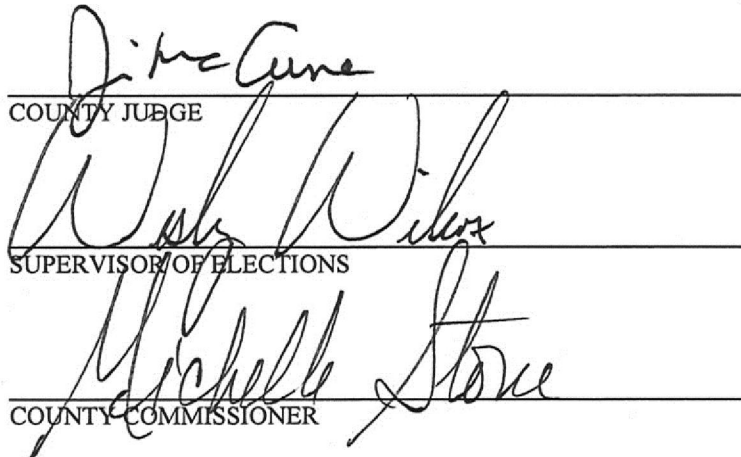 Jim McCune
COUNTY JUDGE
Wesley Wilcox
SUPERVISOR OF ELECTIONS
Michelle Stone
COUNTY COMMISSIONER